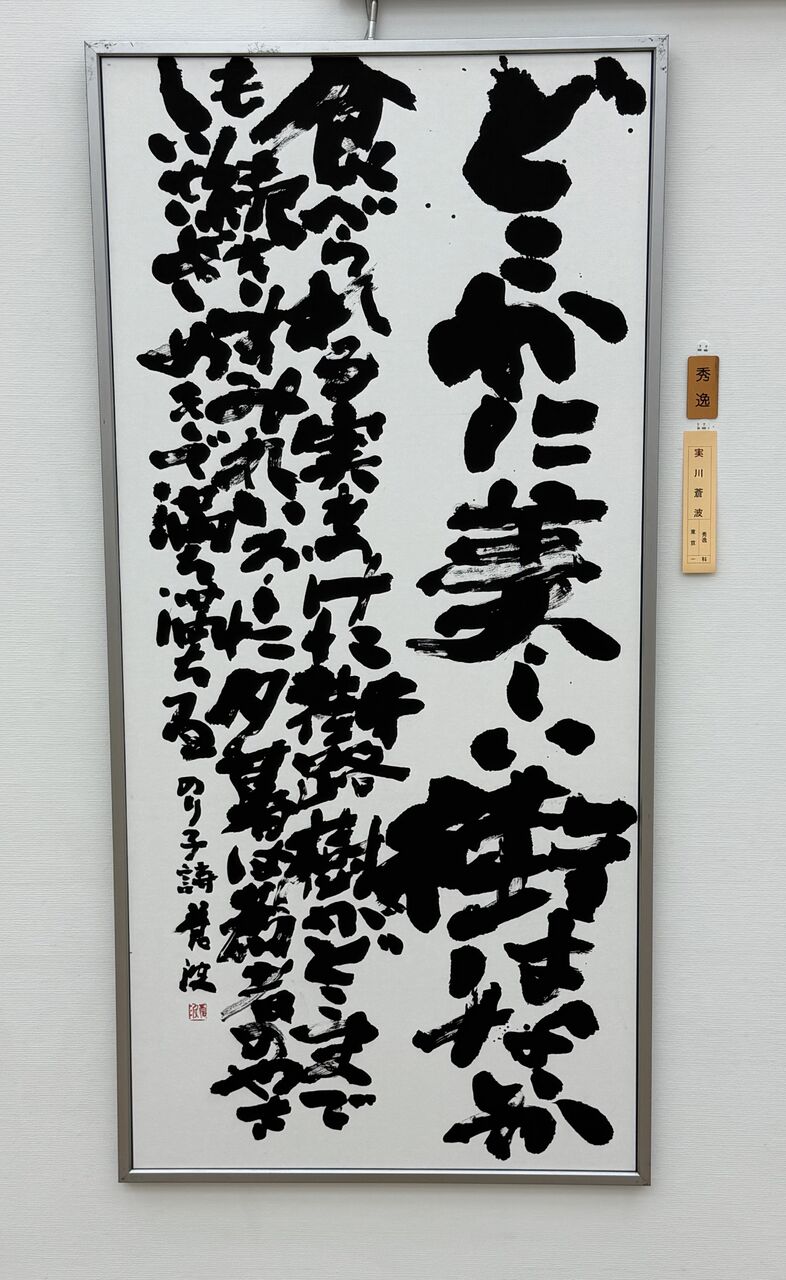 どこかに美しい街はないか
食べられる実をつけた街路樹がどこまで
も続きすみれいろした夕暮は若者のやさ
しいさざめきで満ち満ちる
のり子詩 蒼波
秀逸
実川蒼波